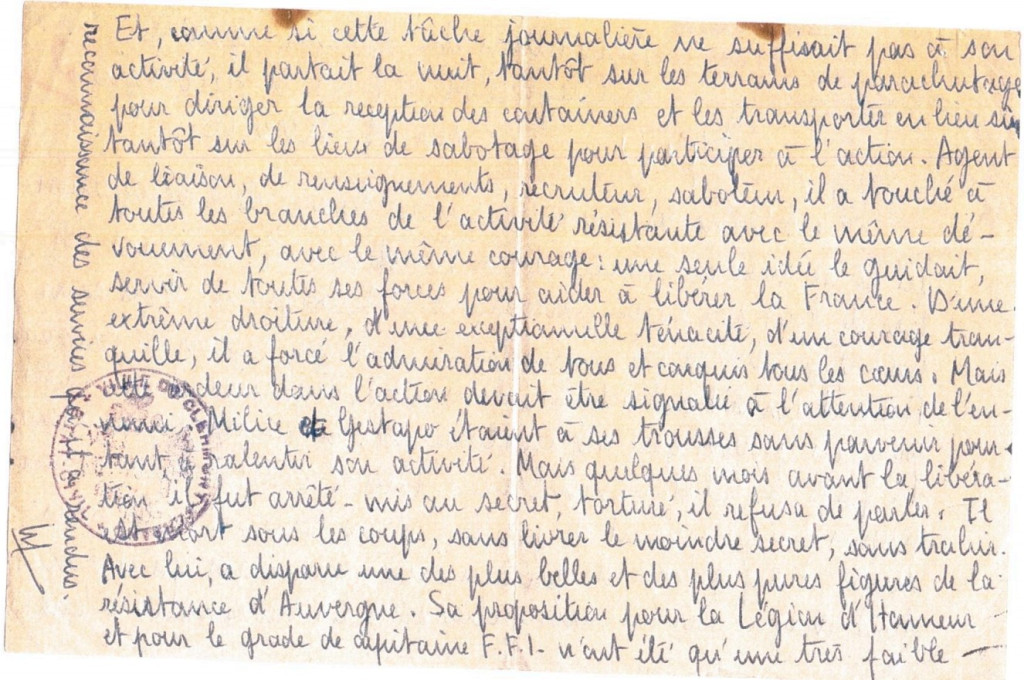 Et, comme si cette tâche journalière ne suffisait pas à son
activité, il partait la nuit, tantôt sur les terrains de parachutage
pour diriger la reception des containers et les transporter en lieu sûr
tantôt sur les lieux de sabotage pour participer à l'action. Agent
de liaison, de renseignements, recruteur, saboteur, il a touché à
toutes les branches de l'activité résistante avec le même dé-
vouement, avec le même courage : une seule idée le guidait,
servir de toutes ses forces pour aider à libérer la France. D'une
extrême droiture, d'une exceptionnelle ténacité, d'un courage tran-
quille, il a forcé l'admiration de tous et conquis tous les cœurs. Mais
cette ardeur dans l'action devait être signalée à l'attention de l'en-
nemi. Milice et Gestapo étaient à ses trousses sans parvenir pour-
tant à ralentir son activité. Mais quelques mois avant la libéra-
tion il fut arrêté - mis au secret, torturé, il refusa de parler. Il
est mort sous les coups, sans livrer le moindre secret, sans trahir.
Avec lui, a disparu une des plus belles et des plus pures figures de la
résistance d'Auvergne. Sa proposition pour la Légion d'Honneur
et pour le grade de capitaine F.F.I - n'ont été qu'une très faible -
reconnaissance des services rendus.
VILLE DE CLERMONT